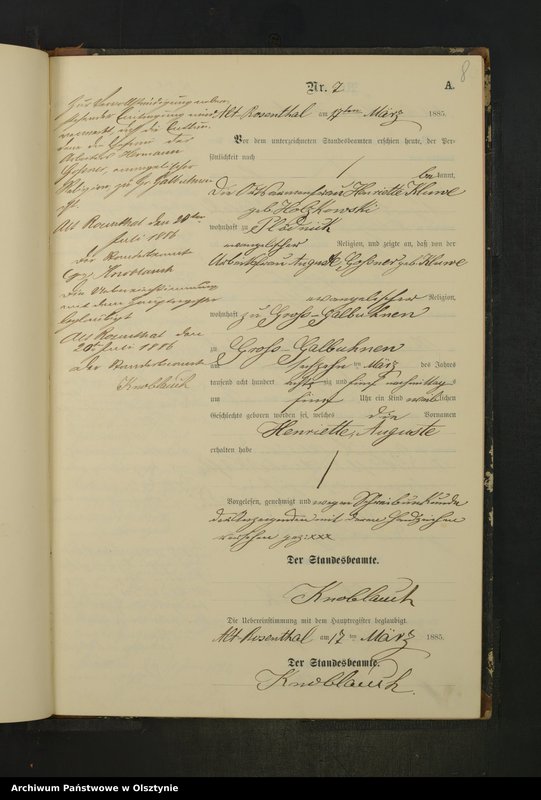 8
Nr. 7 A.
Alt Rosenthal am 17ten März 1885.
Vor dem unterzeichneten Standesbeamten erschien heute, der Per-
sönlichkeit nach
be kannt,
die Ortsarmenfrau Henriette Kluwe
geb Holzkowski
wohnhaft zu Plödnick
evangelischer Religion, und zeigte an, daß von der
Arbeiterfrau Auguste Goßner geb. Kluwe
evangelischer Religion,
wohnhaft zu Gross-Galbuhnen
zu Gross-Galbuhnen
am sechszehn ten März des Jahres
tausend acht hundert achtzig und fünf nachmittags
um fünf Uhr ein Kind weiblichen
Geschlechts geboren worden sei, welches die Vornamen
Henriette, Auguste
erhalten habe
Vorgelesen, genehmigt und wegen Schreibunkunde
der Anzeigenden mit deren Handzeichen
versehen gez: xxx
Der Standesbeamte.
Knoblauch
Die Uebereinstimmung mit dem Hauptregister beglaubigt
Alt Rosenthal am 17 ten März 1885.
Der Standesbeamte.
Knoblauch.
Zur Vervollständigung neben
stehender Eintragung wird
vermerkt daß die
der Ehefrau des
Arbeiters Hermann
Goßner, evangelischer
Religion zu Gr Galbuhnen
ist.
Alt Rosenthal den 20ten
Juli 1886
Der Standesbeamte
gez. Knoblauch
Die Uebereinstimmung
mit dem Hauptregister
beglaubigt
Alt Rosenthal den
20ten Juli 1886
Der Standesbeamte
Knoblauch
Archiwum Państwowe w Olsztynie